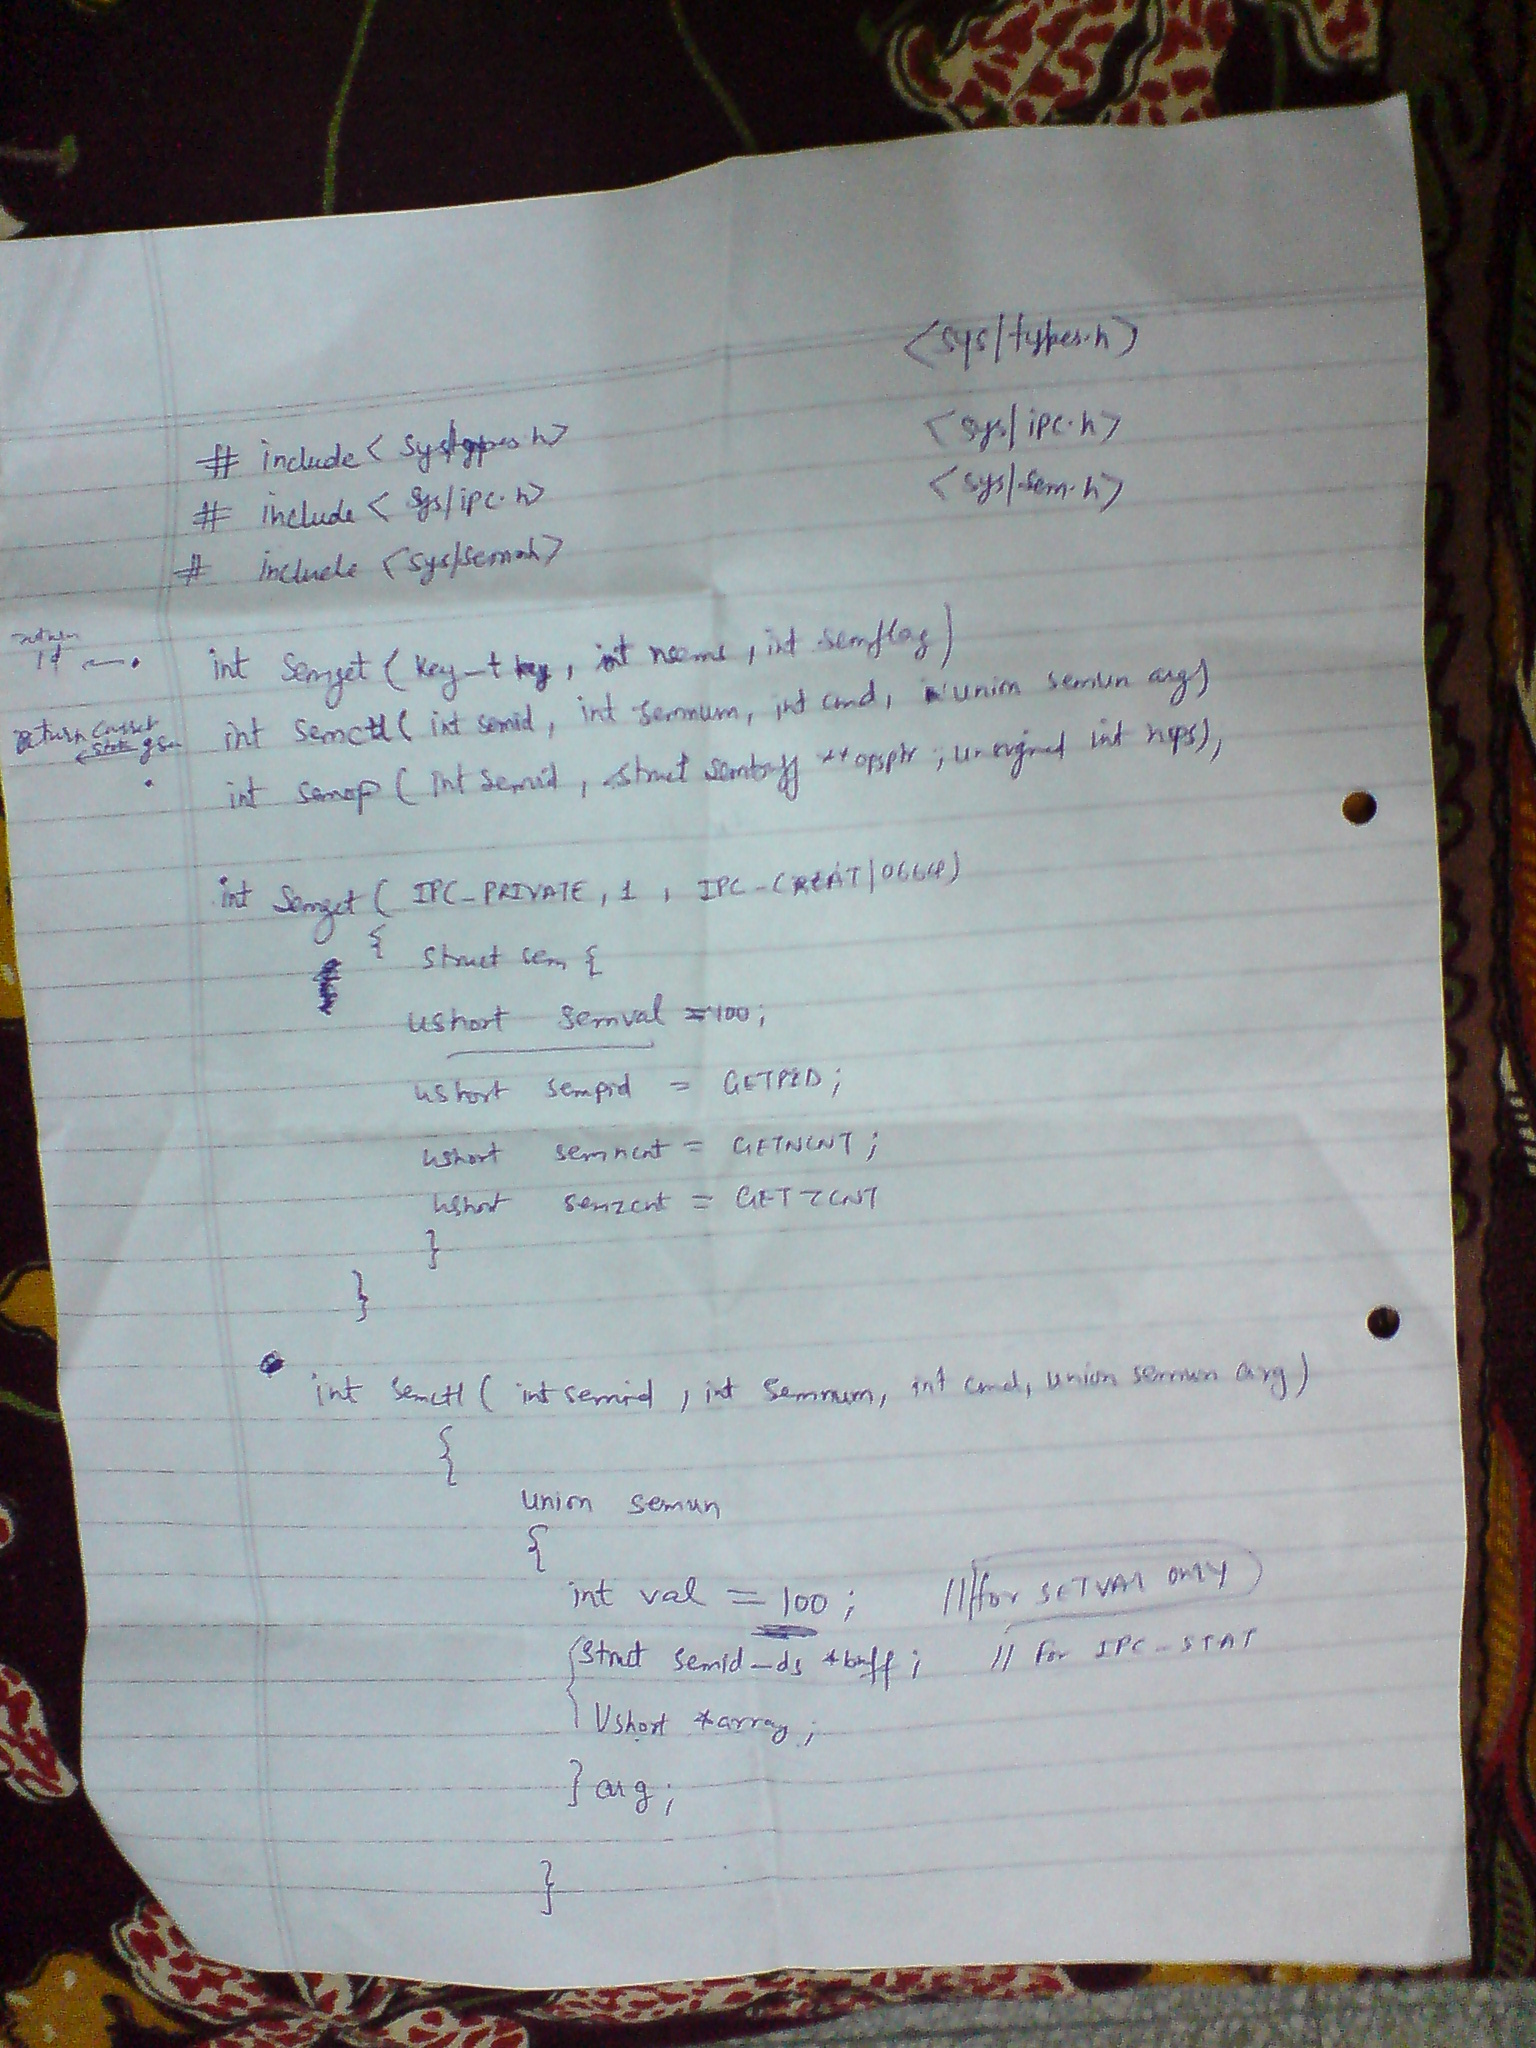 <sys/types.h>
<sys/ipc.h>
<sys/sem.h>
# include < sys/types.h>
# include < sys/ipc.h>
# include <sys/sem.h>
return
id
int semget ( key_t key , int nsems , int semflag )
return current
state of
int semctl ( int semid , int semnum, int cmd, union semun arg)
int semop ( int semid , struct sembuff **opsptr , unsigned int nops),
int semget ( IPC_PRIVATE , 1 , IPC_CREAT |0666)
{ struct sem {
ushort semval = 100;
ushort sempid = GETPID;
ushort semncnt = GETNCNT ;
ushort semzcnt = GETZCNT
}
}
int semctl ( int semid , int semnum, int cmd, union semun arg )
{
union semun
{
int val = 100 ; // for SETVAL ONLY
struct semid_ds *buff ; // for IPC_STAT
Ushort *array ;
} arg ;
}